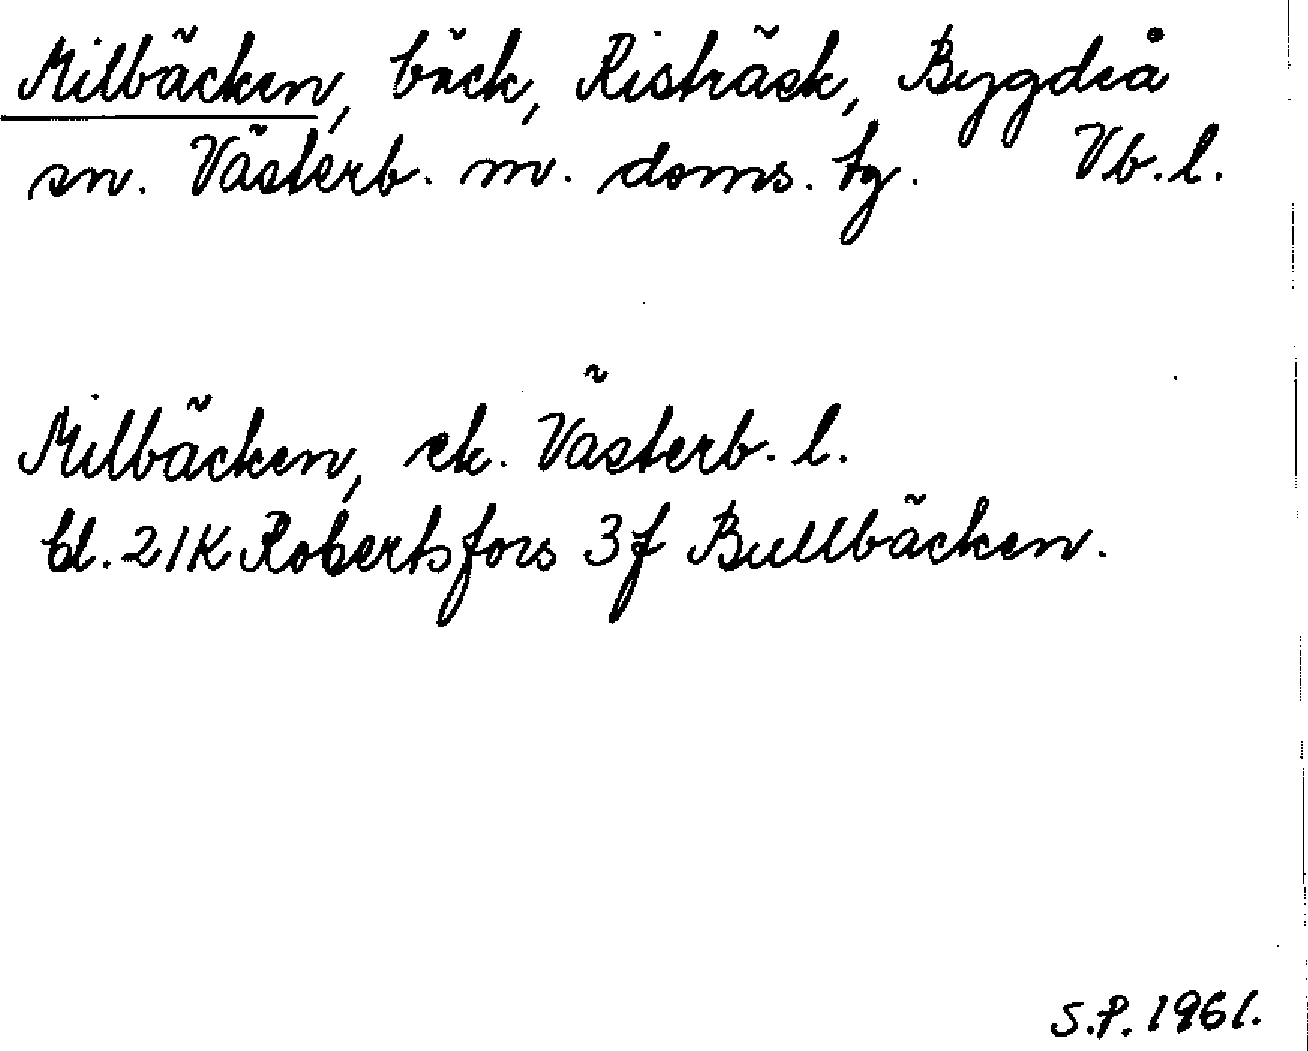 Milbäcken, bäck, Risträsk, Bygdeå
sn. Västerb. m. doms. tg. Vb. l.
Milbäcken, ek. Västerb. l.
bl. 21K Robertsfors 3f Bullbäcken.
S.P. 1961.